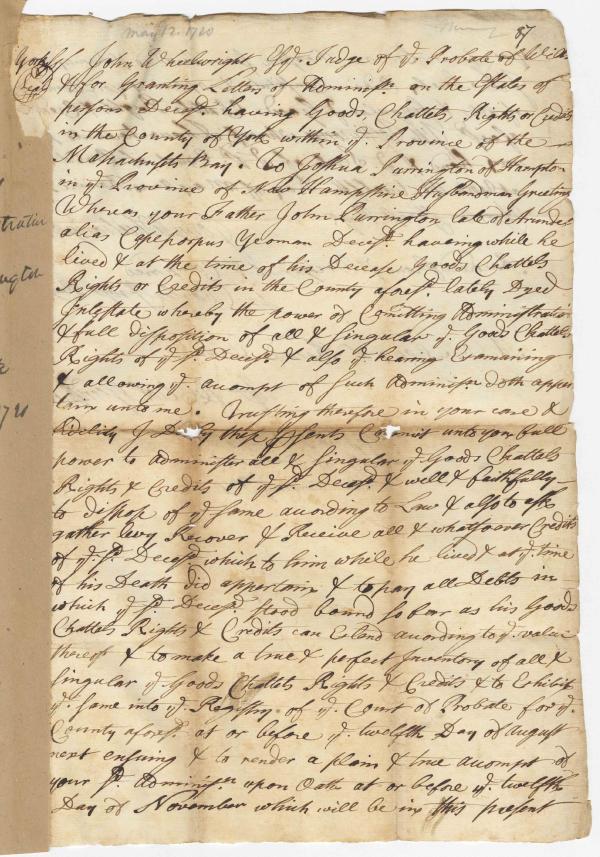 may 12. 1720
87
York ss John Wheelwright Esqr. Judge of ye. Probate of Wills
& for Granting Letters of Adminisn. on the Estates of
persons Decesd. having Goods, Chattels, Rights or Credits
in the County of York within ye. Province of the
Massachusets Bay. To Joshua Purrington of Hampton
in ye. Province of New Hampshire Husbandman Greeting
Whereas your Father John Purrington late of Arundel
alias Capeporpus Yeoman Decesd. haveing while he
lived & at the time of his Decease Goods Chattels
Rights or Credits in the County aforesd. lately Dyed
Intestate whereby the power of Comitting Administration
& full disposition of all & Singular ye. Goods Chattels
Rights of ye. sd. Decesd. & also ye. hearing Examining
& allowing ye. accompt of such Adminisn. doth apper
tain unto me. Trusting therefore in your care &
fidelity I Do by these psents Comit unto you full
power to Administer all & Singular ye. Goods Chattels
Rights & Credits of ye. sd. Decesd. & well & faithfully
to dispose of ye. same according to Law & also to ask
gather levy Recover & Receive all & whatsoever Credits
of ye. sd. Decesd. which to him while he lived & at ye. time
of his Death did appertain & to pay all Debts in
which ye. sd. Decesd. stood bound so far as his Goods
Chattels Rights & Credits can Extend according to ye. value
thereof & to make a true & perfect Inventory of all &
Singular ye. Goods Chattels Rights & Credits & to Exhibit
ye. same into ye. Registry of ye. Court of Probate for ye.
County aforesd. at or before ye. twelfth Day of August
next ensuing & to render a plain & true accompt of
your sd. Adminisn. upon Oath at or before ye. twelfth
Day of November which will be in this present